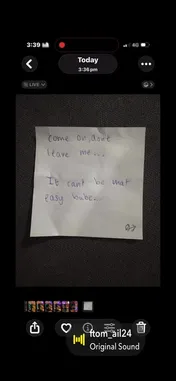 3:39
4G
Today
3:36 pm
LIVE
come on, don't
leave me...
It cant be that
easy babe...
ftom_ail24
Original Sound